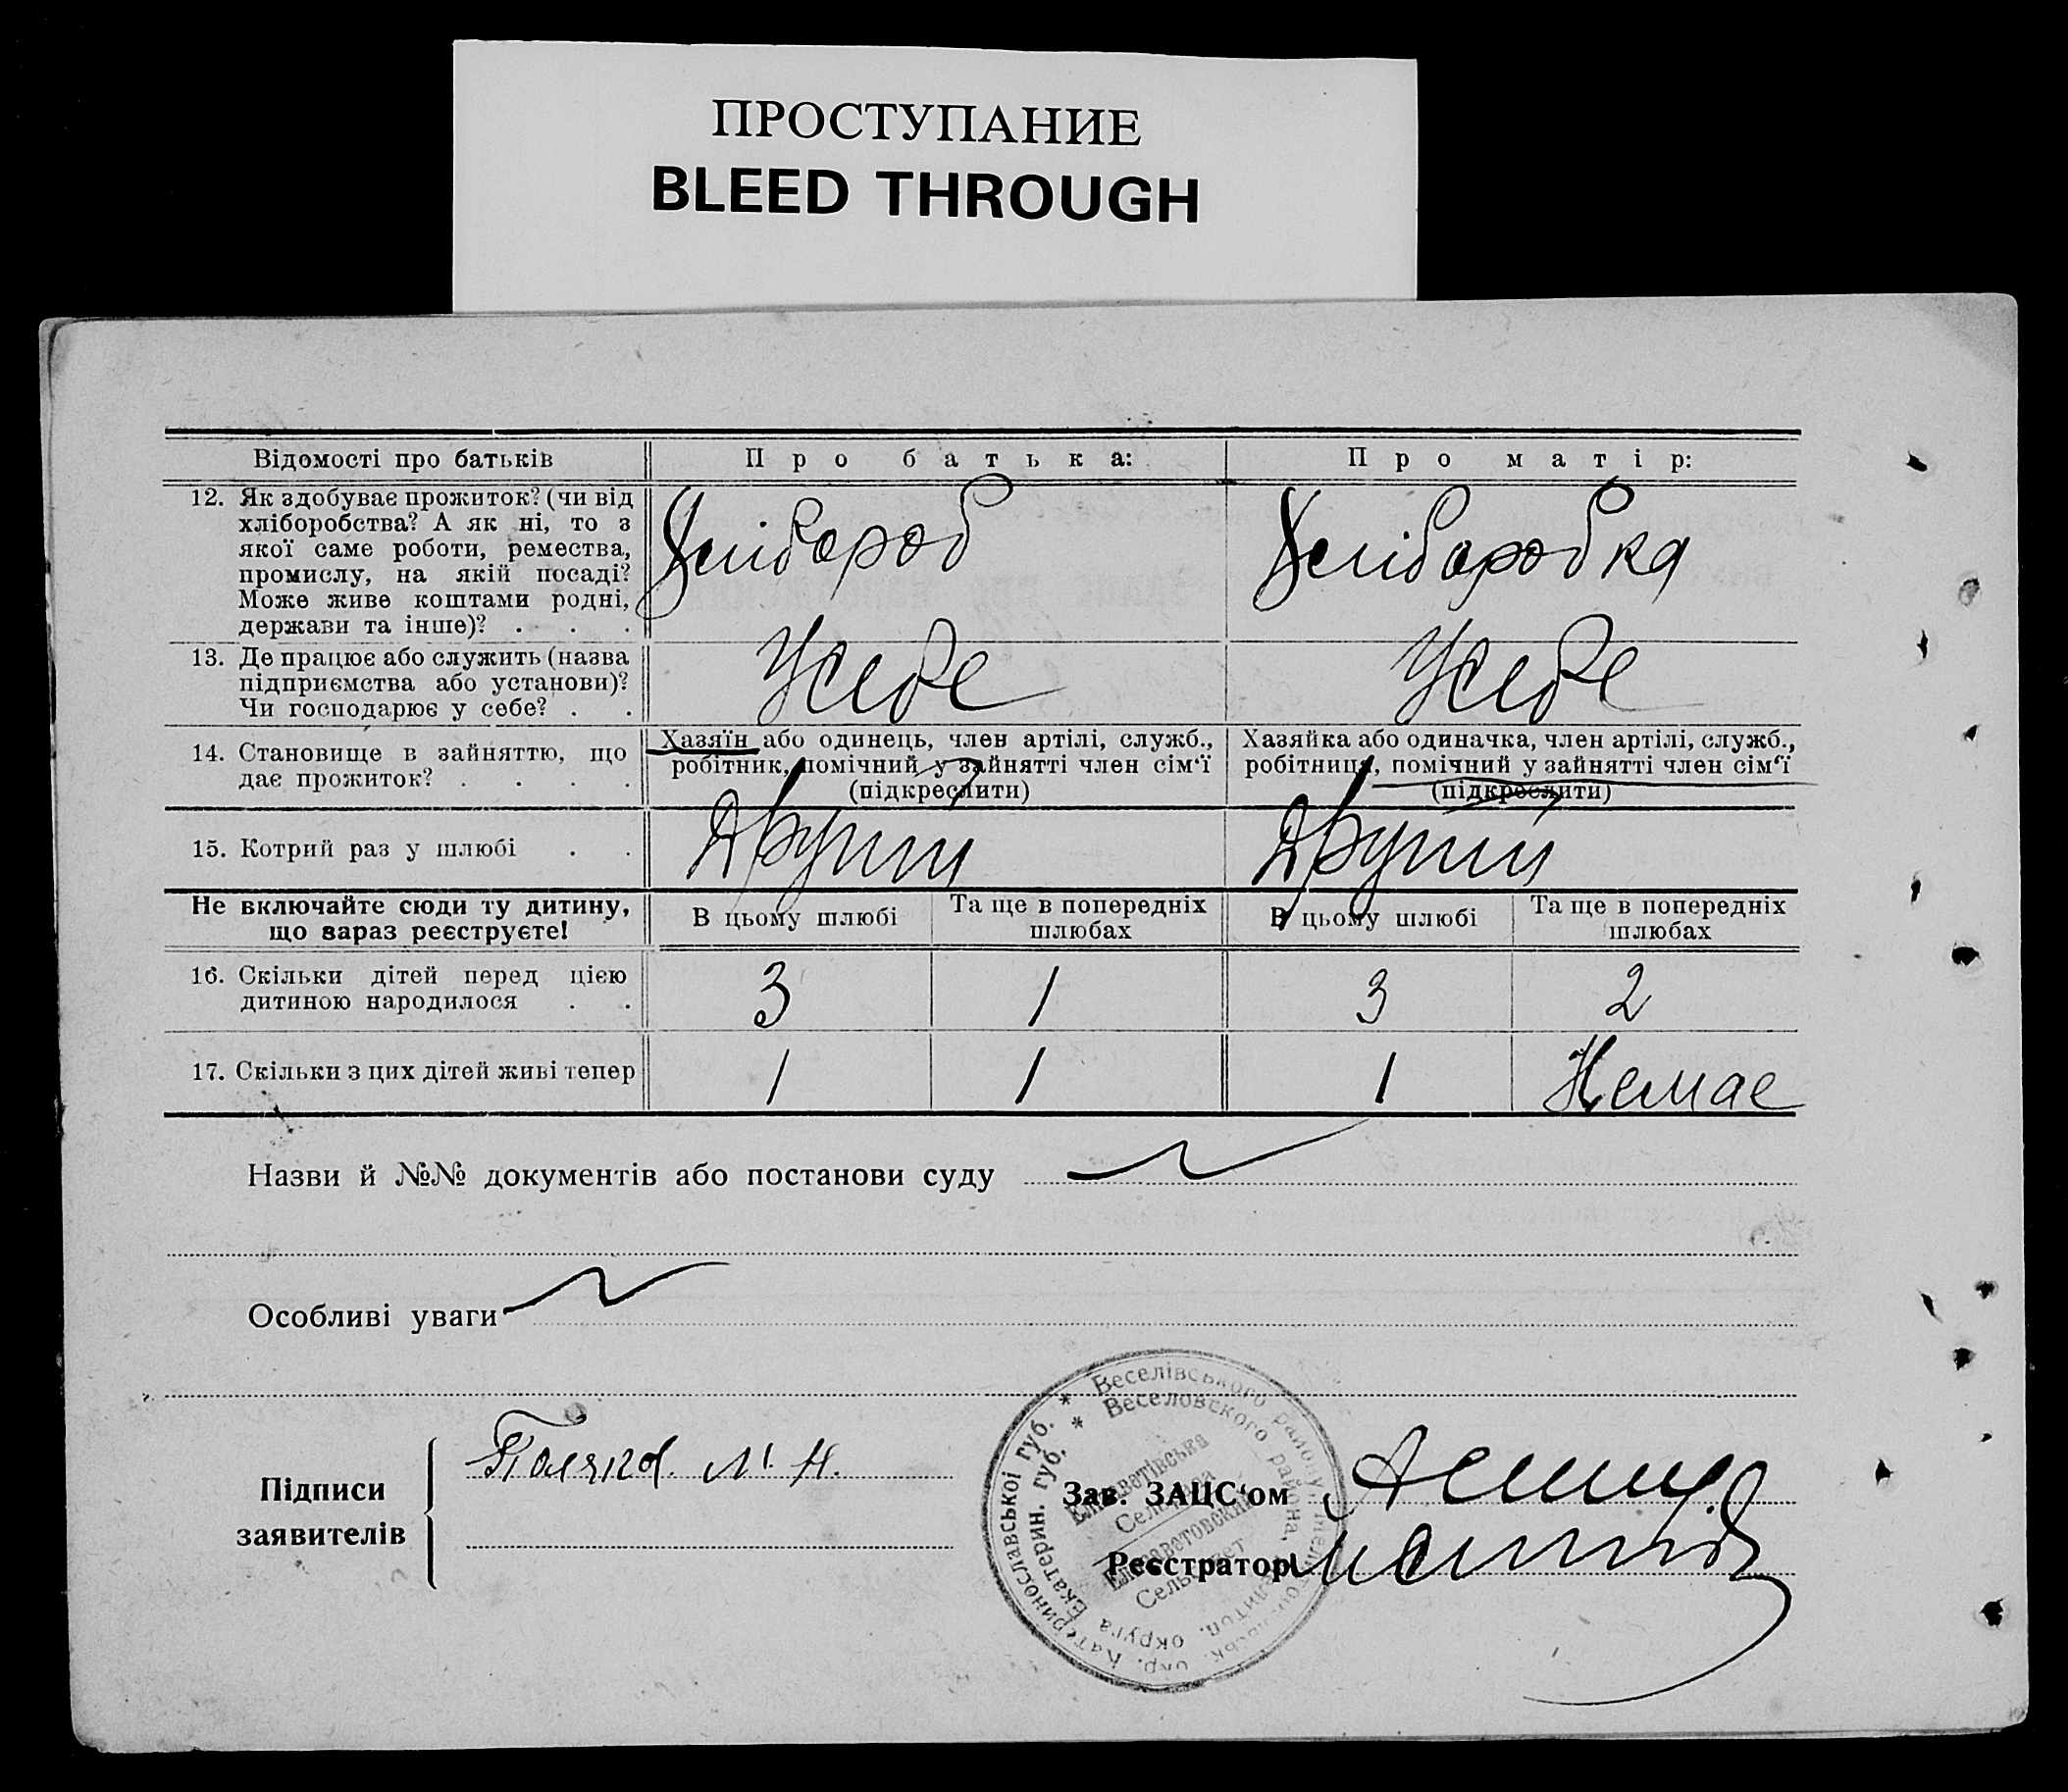 ПРОСТУПАНИЕ
BLEED THROUGH
Відомості про батьків
Про батька:
Про матір:
12. Як здобуває прожиток? (чи від
хліборобства? А як ні, то з
якої саме роботи, ремества,
промислу, на якій посаді?
Може живе коштами родні,
держави та інше)? . . .
Хлібороб
Хліборобка
13. Де працює або служить (назва
підприємства або установи)?
Чи господарює у себе? . .
У себе
У себе
14. Становище в зайняттю, що
дає прожиток? . . . .
Хазяїн або одинець, член артілі, служб.,
робітник, помічний у зайнятті член сім'ї
(підкреслити)
Хазяйка або одиначка, член артілі, служб.,
робітниця, помічний у зайнятті член сім'ї
(підкреслити)
15. Котрий раз у шлюбі . .
Другий
Другий
Не включайте сюди ту дитину,
що зараз реєструєте!
В цьому шлюбі
Та ще в попередніх
шлюбах
В цьому шлюбі
Та ще в попередніх
шлюбах
16. Скільки дітей перед цією
дитиною народилося . .
3
1
3
2
17. Скільки з цих дітей живі тепер
1
1
1
Немає
Назви й №№ документів або постанови суду
Особливі уваги
Підписи
заявителів
Зав. ЗАЦС'ом
Реєстратор
Веселівського району,
Катеринославської губ. *
Веселовского района,
округа Екатерин. губ. *
Елизаветовский
Сельсовет